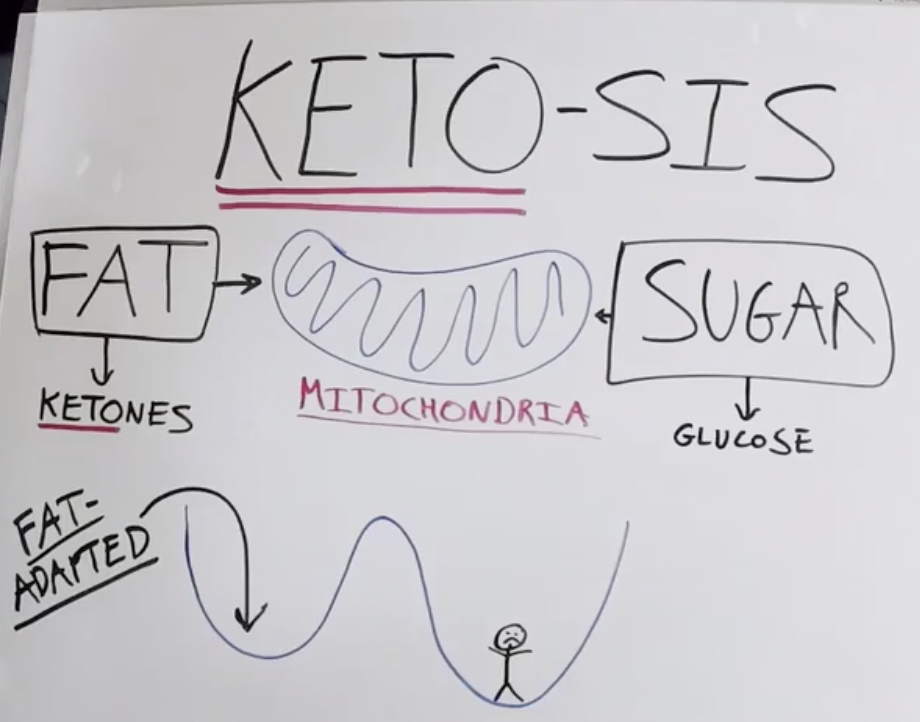 KETO-SIS
FAT
SUGAR
KETONES
MITOCHONDRIA
GLUCOSE
FAT-
ADAPTED